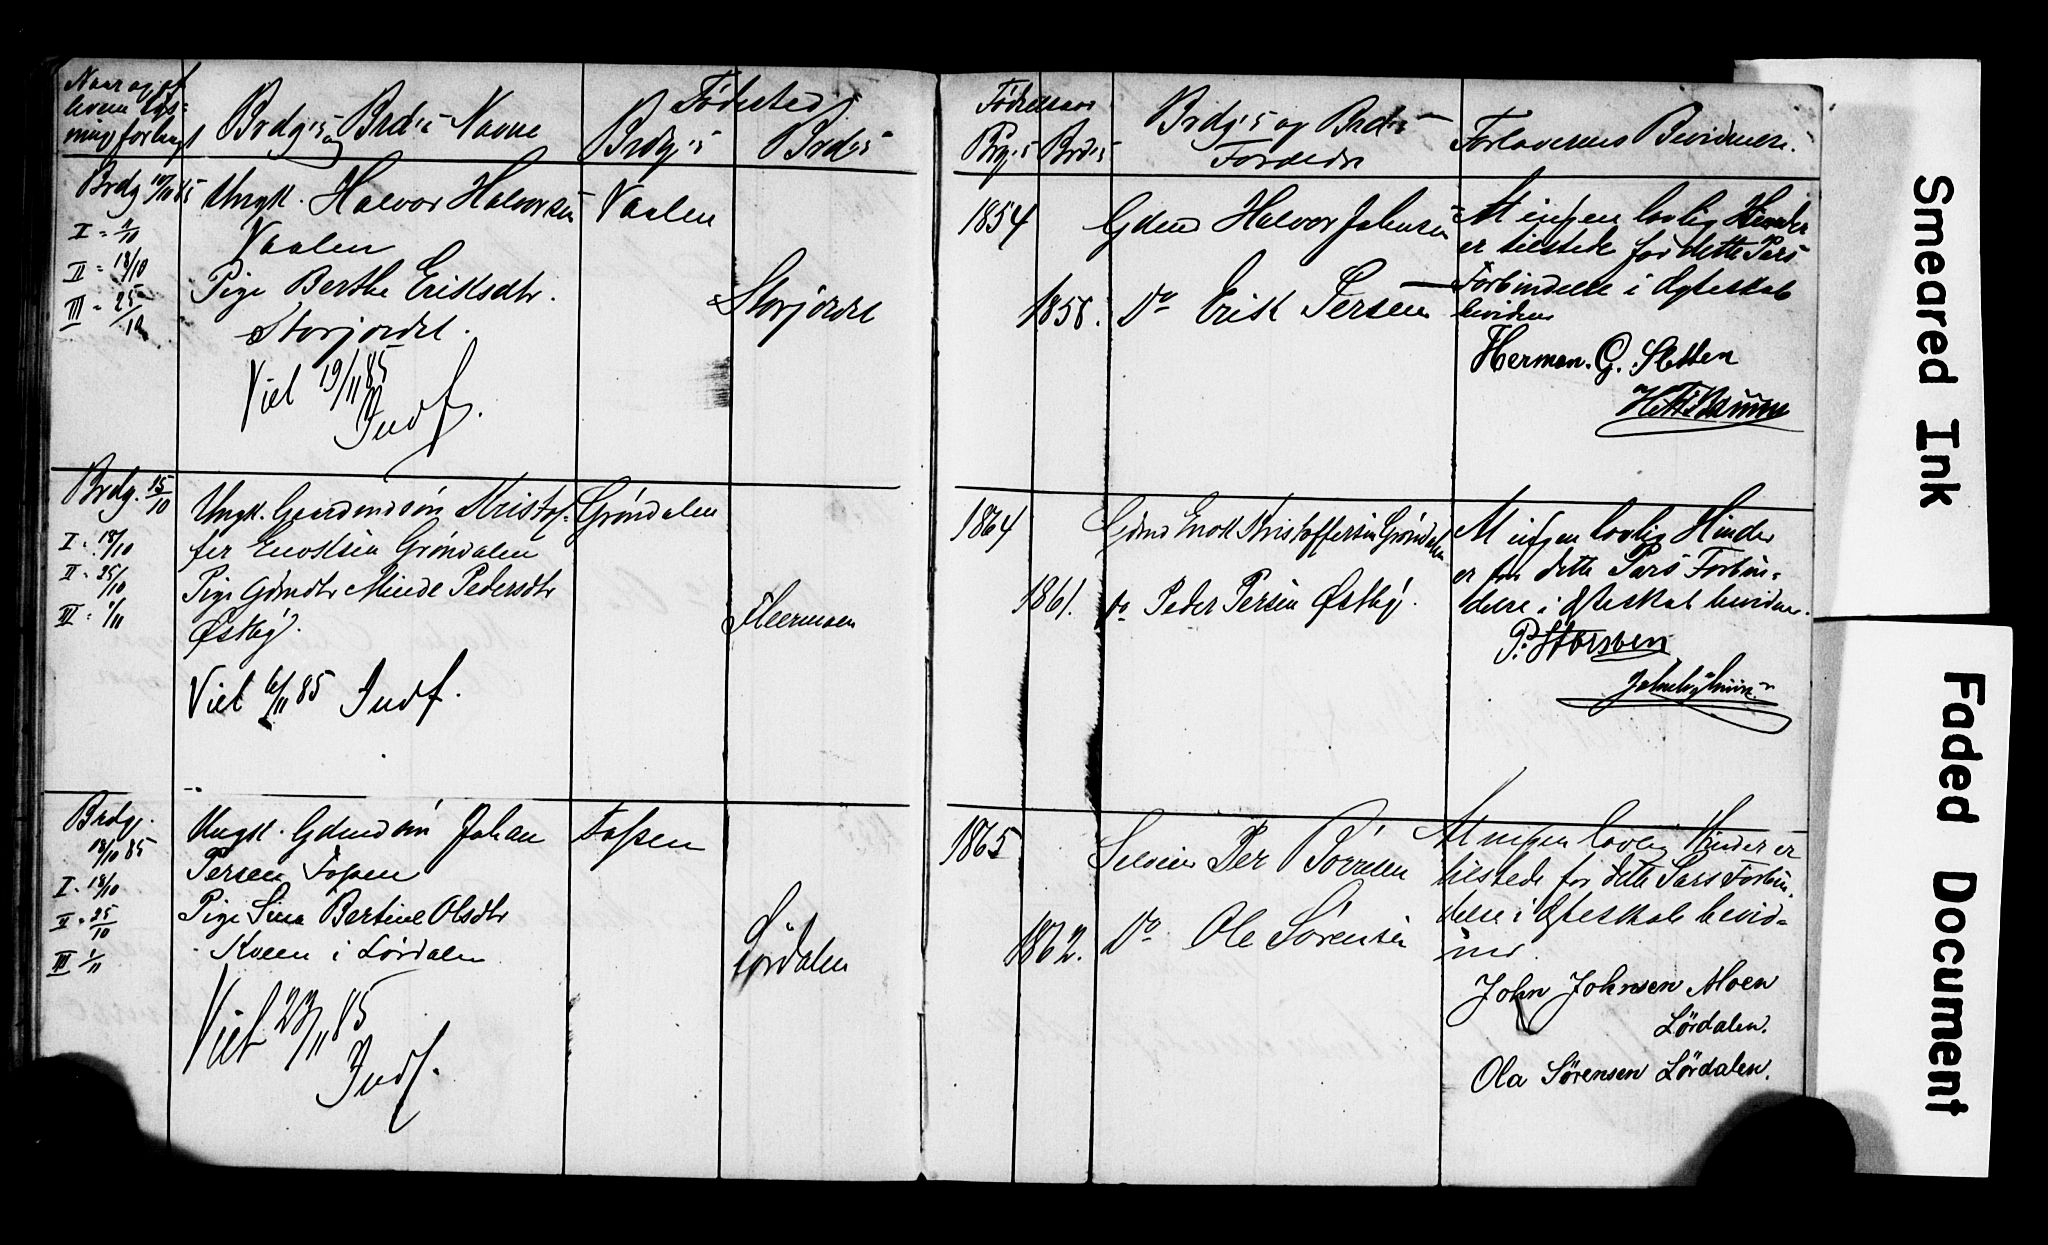 Naar og af
hvem lys-
ning forlangt
Brdg.s og Brd.s Navne
Fødested
Brdg.s
Brd.s
Fødselsaar
Brdg.s
Brd.s
Brdg.s og Brd.s
Forældre
Forlovernes Bevidnelse.
Brdg 85
I = 
II = 18/10
III = 25/10
Ungk. Halvor Halvorsen
Vaalen
Pige Berthe Eriksdtr.
Storjordet.
Viet 19/11 85
Indf.
Vaalen
Storjordet
1854
1858.
Gdmd Halvor Johnsen
Do Erik Persen
At ingen lovlig Hinder
er tilstede for dette Pars
Forbindelse i Ægteskab
bevidnes
Herman. G. Sletten
Brdg. 15/10
I = 18/10
II = 25/10
III = 1/11
Ungk. Gaardmdsøn Kristof-
fer Enoksen Grøndalen
Pige Gdmdtr Minde Pedersdtr
Østby.
Viet 6/11 85 Indf.
Grøndalen
Flermoen
1864
1861.
Gdmd Enok Kristoffersen Grøndalen
do Peder Persen Østby.
At ingen lovlig Hinder
er for dette Pars Forbin-
delse i Ægteskab bevidnes.
Brdg.
18/10 85
I = 18/10
II = 25/10
III 1/11
Ungk. Gdmdsøn Johan
Persen Fossen
Pige Sina Bertine Olsdtr
Kveen i Lørdalen
Viet 23/11 85
Indf.
Fossen
Lørdalen
1865
1862.
Selveier Per
Do Ole Sørensen
At ingen lovlig Hinder er
tilstede for dette Pars Forbin-
delse i Ægteskab bevid-
nes.
John Johnsen Moen
Lördalen.
Ola Sörensen Lördalen.
Smeared Ink
Faded Document